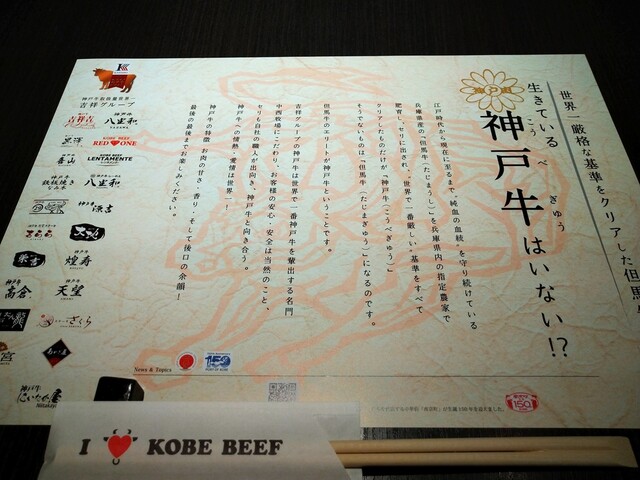 世界一厳格な基準をクリアした但馬牛
神戸
生きている
こうべぎゅう
神戸牛はいない!?
江戸時代から現在に至るまで、“純血の血統”を守り続けている
兵庫県産の「但馬牛(たじまうし)」を兵庫県内の指定農家で
肥育し、セリに出され、“世界で一番厳しい”基準をすべて
クリアしたものだけが「神戸牛(こうべぎゅう)」
そうでないものは「但馬牛(たじまぎゅう)」になるのです。
但馬牛のエリートが神戸牛ということです。
吉祥グループの神戸牛は世界で一番神戸牛を輩出する名門
中西牧場にこだわり、お客様の安心・安全は当然のこと、
セリも自社の職人が出向き、神戸牛と向き合う。
神戸牛への情熱・愛情は世界一!
神戸牛の特徴、お肉の甘さ・香り、そして後口の余韻!
最後の最後までお楽しみください。
吉祥グループ
吉祥吉
八坐和
黒澤
RED ONE
春山
LENTAMENTE
鉄板焼き
八坐和
源吉
きらら
栄吉
煌寿
高倉
天望
さくら
宮
News & Topics
150
I KOBE BEEF